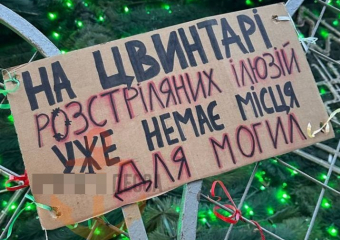 НА ЦВИНТАРІ
РОЗСТРІЛЯНИХ ІЛЮЗІЙ
УЖЕ НЕМАЄ МІСЦЯ
ДЛЯ МОГИЛ